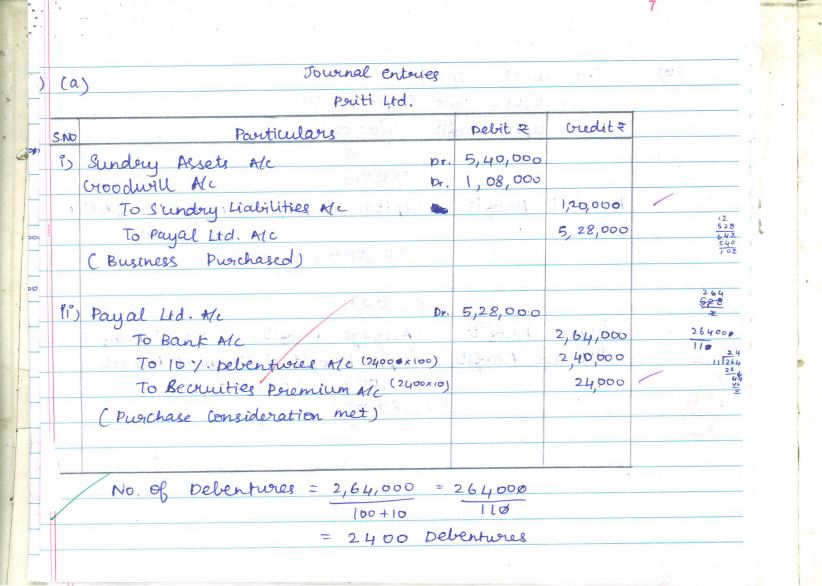 7
) (a) Journal entries
Priti Ltd.
S.NO Particulars Debit ₹ Credit ₹
i) Sundry Assets A/c Dr. 5,40,000
Goodwill A/c Dr. 1,08,000
To Sundry Liabilities A/c 1,20,000
To Payal Ltd. A/c 5,28,000
(Business Purchased)
12
528
648
540
108
ii) Payal Ltd. A/c Dr. 5,28,000
To Bank A/c 2,64,000
To 10 %. Debentures A/c (2400x100) 2,40,000
To Becruities Premium A/c (2400x10) 24,000
(Purchase Consideration met)
264
528
2
264000
110
24
11)264
22
44
44
No. of Debentures = 2,64,000 = 264000
100+10 110
= 2400 Debentures